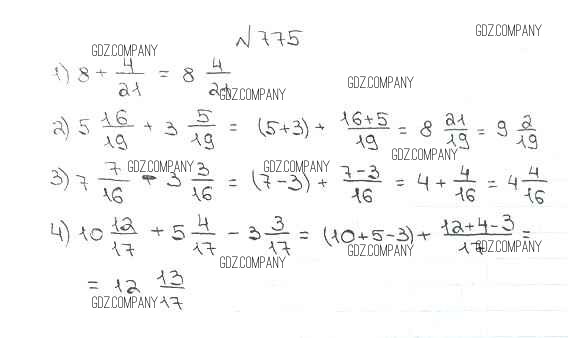 №775
1) 8 + 4/21 = 8 4/21
2) 5 16/19 + 3 5/19 = (5+3) + (16+5)/19 = 8 21/19 = 9 2/19
3) 7 7/16 - 3 3/16 = (7-3) + (7-3)/16 = 4 + 4/16 = 4 4/16
4) 10 12/17 + 5 4/17 - 3 3/17 = (10+5-3) + (12+4-3)/17 =
= 12 13/17
GDZ.COMPANY
GDZ.COMPANY
GDZ.COMPANY
GDZ.COMPANY
GDZ.COMPANY
GDZ.COMPANY
GDZ.COMPANY
GDZ.COMPANY
GDZ.COMPANY
GDZ.COMPANY
GDZ.COMPANY